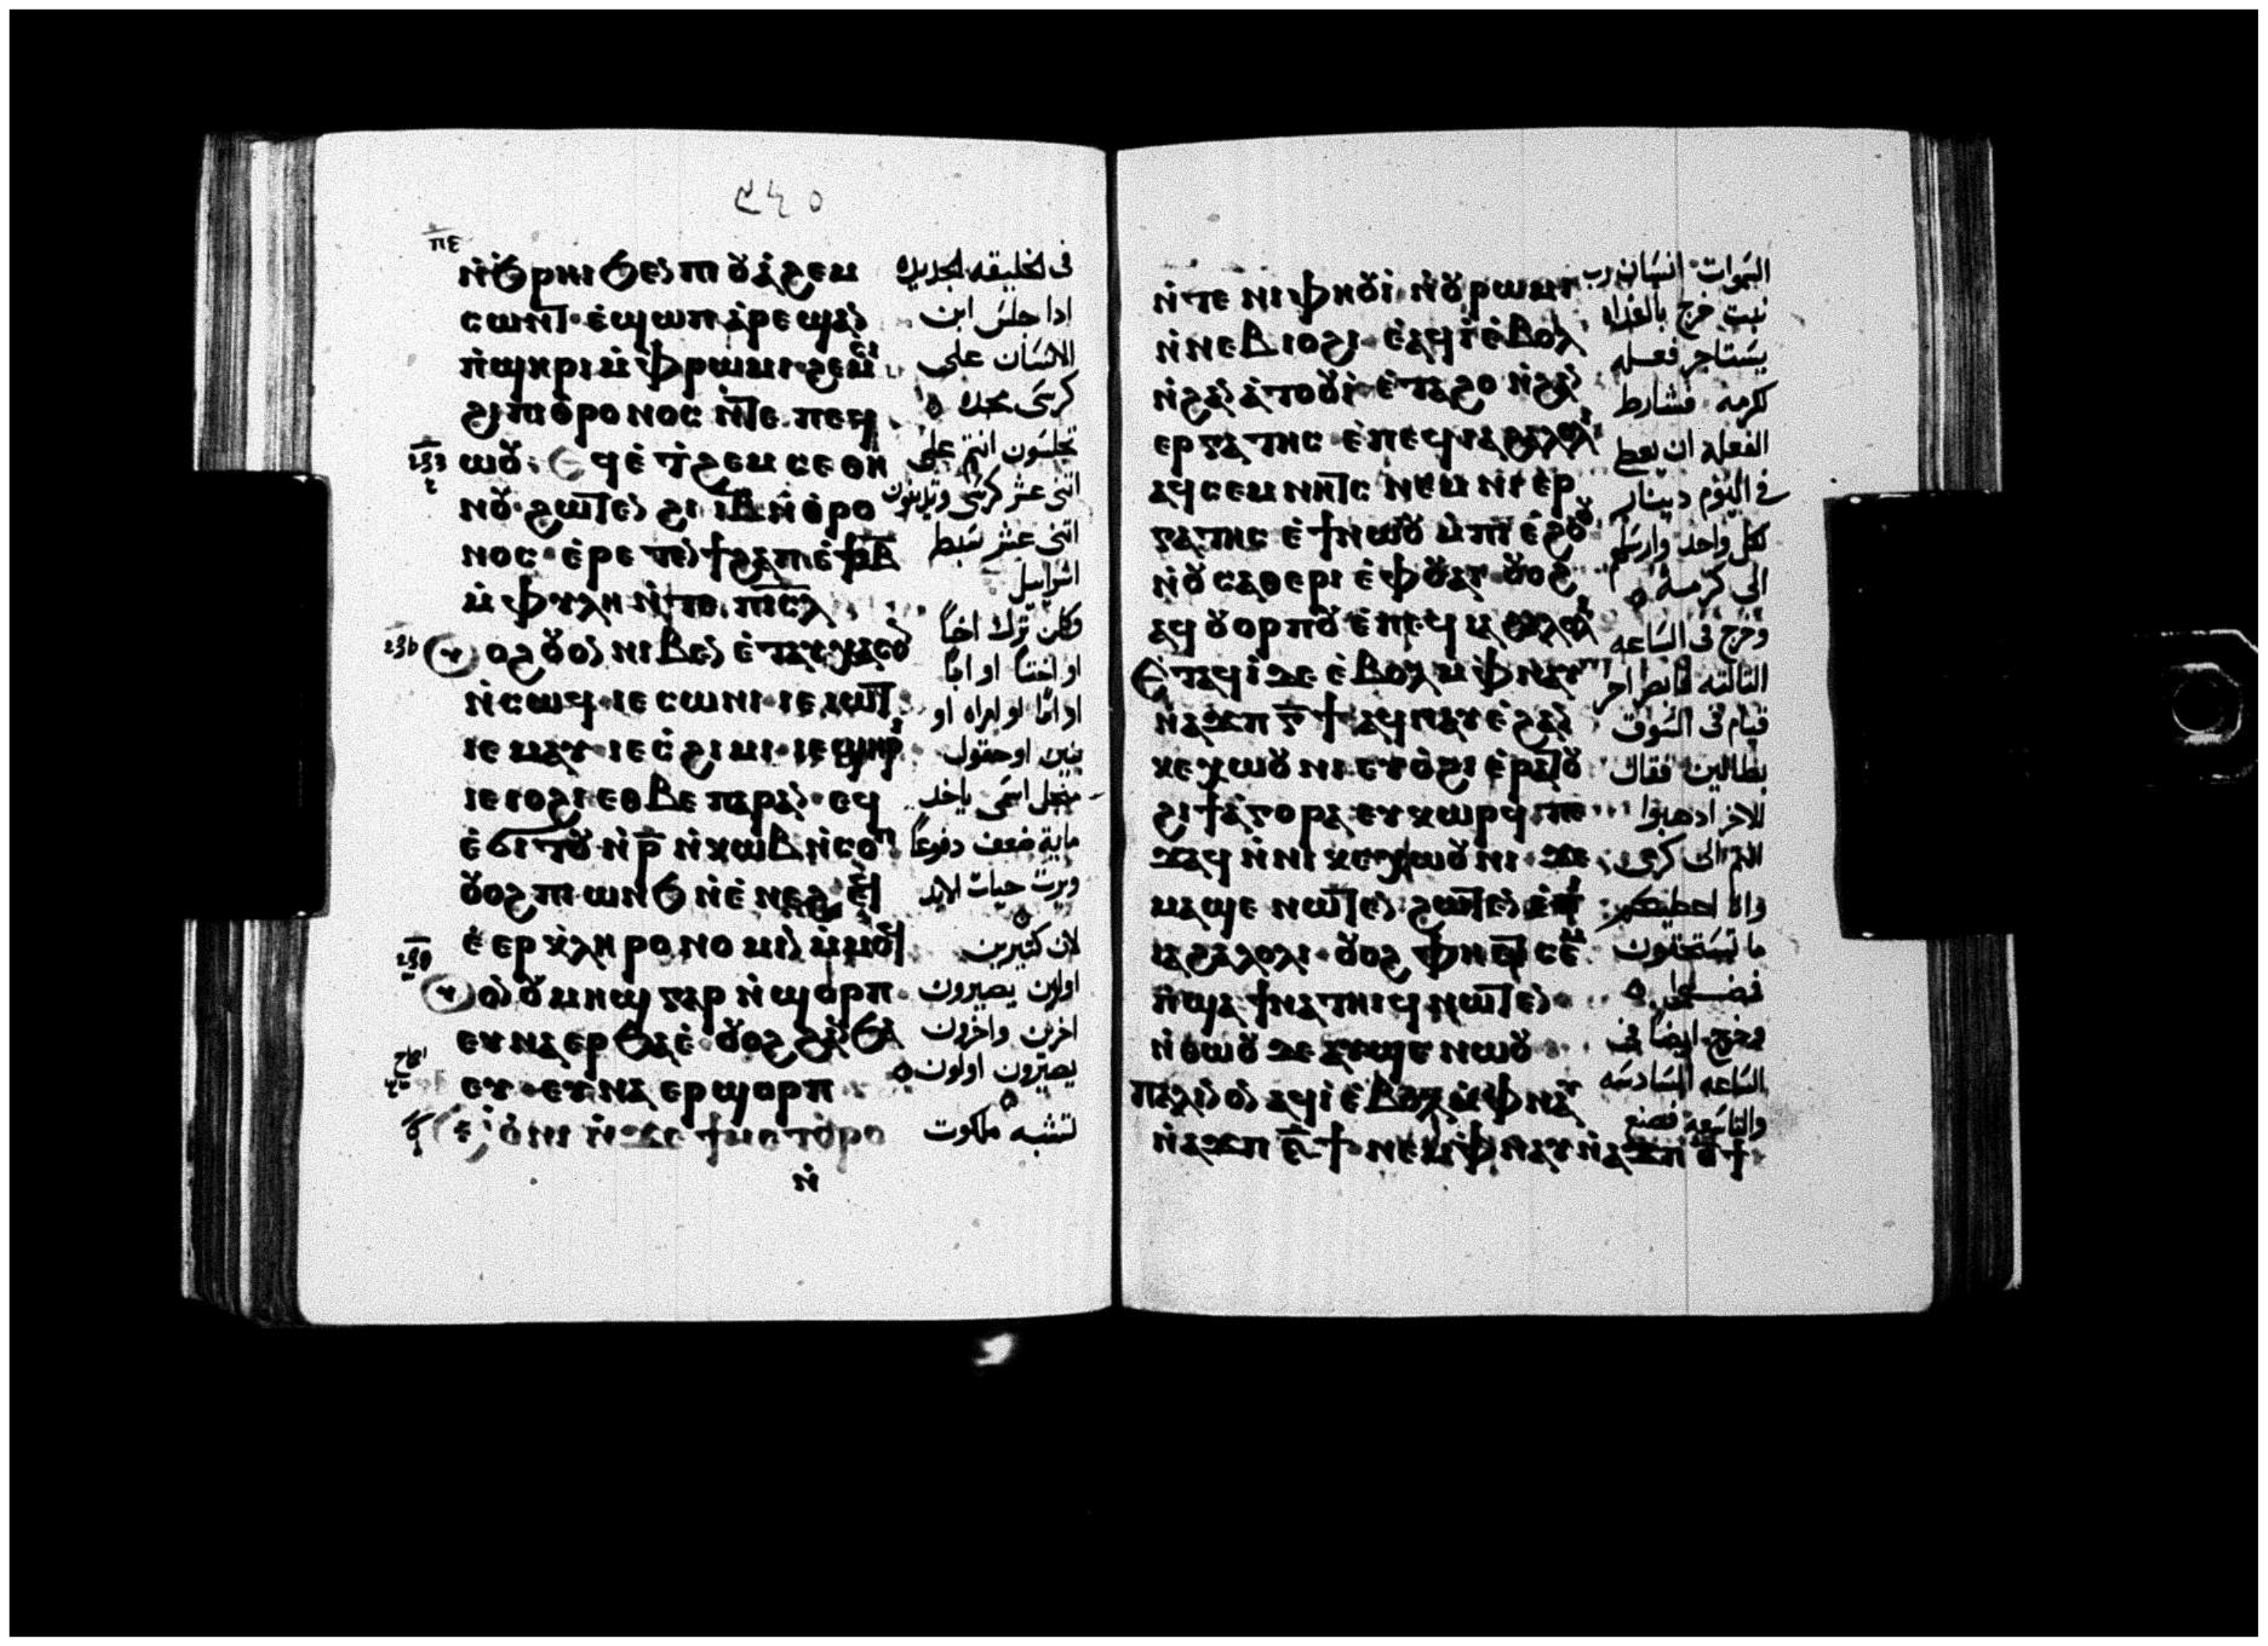 ⲡⲉ
ⲛ̀ϧⲣⲏⲓ ϧⲉⲛ ⲡⲓ ⲟⲩⲁ̀ϩⲉⲙ
ⲥⲱⲛⲧ· ⲉ̀ϣⲱⲡ ⲁ̀ⲣⲉϣⲁⲛ
ⲡ̀ϣⲏⲣⲓ ⲙ̀ⲫⲣⲱⲙⲓ· ϩⲉⲙⲥⲓ
ϩⲓ ⲡⲓⲑⲣⲟⲛⲟⲥ ⲛ̀ⲧⲉ ⲡⲉϥ
ⲱⲟⲩ: ⲉϥⲉ̀ⲧ̀ϩⲉⲙⲥⲉ ⲑⲏ
ⲛⲟⲩ· ϩⲱⲧⲉⲛ ϩⲓ ⲓⲃ ⲛ̀ⲑⲣⲟ
ⲛⲟⲥ· ⲉ̀ⲣⲉⲧⲉⲛϯϩⲁⲡ ⲉ̀ϯⲓⲃ
ⲙ̀ⲫⲩⲗⲏ ⲛ̀ⲧⲉ ⲡⲓⲥⲗ
ⲟⲩⲟϩ ⲟⲩⲟⲛ ⲛⲓⲃⲉⲛ ⲉ̀ⲧⲁⲩⲭⲁⲥⲟⲛ
ⲛ̀ⲥⲱϥ· ⲓⲉ ⲥⲱⲛⲓ· ⲓⲉ ⲓⲱⲧ
ⲓⲉ ⲙⲁⲩ· ⲓⲉ ⲥ̀ϩⲓⲙⲓ· ⲓⲉ ϣⲏⲣⲓ
ⲓⲉ ⲓⲟϩⲓ ⲉⲑⲃⲉ ⲡⲁⲣⲁⲛ· ⲉϥ
ⲉ̀ϭⲓⲧⲟⲩ ⲛ̀ⲣ̄ ⲛ̀ⲭⲱⲃ ⲛ̀ⲥⲟⲡ
ⲟⲩⲟϩ ⲡⲓⲱⲛϧ ⲛ̀ⲉ̀ⲛⲉϩ ⲉϥ
ⲉ̀ⲉⲣⲕ̀ⲗⲏⲣⲟⲛⲟⲙⲓⲛ ⲙ̀ⲙⲟϥ
ⲟⲩⲟⲛ ⲟⲩⲙⲏϣ ⲅⲁⲣ ⲛ̀ϣⲟⲣⲡ
ⲉⲩⲛⲁⲉⲣϧⲁⲉ̀· ⲟⲩⲟϩ ϩⲁⲛϧⲁ
ⲉⲩ· ⲉⲩⲛⲁⲉⲣϣⲟⲣⲡ
ⲥ̀ⲟ̀ⲛⲓ ⲛ̀ϫⲉ ϯⲙⲉⲧⲟⲩⲣⲟ
ⲛ̀
في الخليقه الجديده
ادا جلس ابن
الانسان على
كرسى مجده
تجلسون انتم على
اثنى عشر كرسى وتدينون
اثنى عشر سبط
اسراييل
وكلمن ترك اخاً
او اختاً او اباً
او اماً او امراه او
بنين او حقول
منجل اسمى ياخد
مايه ضعف دفوعاً
ويرت حيات الابد
لان كتيرين
اولين يصيرون
اخرين واخرون
يصيرون اولون
تشبه ملكوت
ⲛ̀ⲧⲉ ⲛⲓⲫⲏⲟⲩⲓ̀· ⲛ̀ⲟⲩⲣⲱⲙⲓ
ⲛ̀ⲛⲉⲃⲓⲟϩⲓ· ⲉ̀ⲁϥⲓ̀ ⲉ̀ⲃⲟⲗ
ⲛ̀ϩⲁⲛⲁ̀ⲧⲟⲟⲩⲓ̀· ⲉ̀ⲧⲁϩⲟ ⲛ̀ϩⲁⲛ
ⲉⲣⲅⲁⲧⲏⲥ ⲉ̀ⲡⲉϥⲓⲁϩⲁⲗⲟⲗⲓ
ⲁϥⲥⲉⲙⲛⲏⲧⲥ ⲛⲉⲙ ⲛⲓⲉⲣ
ⲅⲁⲧⲏⲥ ⲉ̀ϯⲛⲱⲟⲩ ⲙ̀ⲡⲓⲉ̀ϩⲟⲟⲩ
ⲛ̀ⲟⲩⲥⲁⲑⲉⲣⲓ ⲉ̀ⲫⲟⲩⲁⲓ· ⲟⲩⲟϩ
ⲁϥⲟⲩⲟⲣⲡⲟⲩ ⲉ̀ⲡⲉϥⲓⲁϩⲁⲗⲟⲗⲓ
ⲉ̀ⲧⲁϥⲓ̀ ⲇⲉ ⲉ̀ⲃⲟⲗ ⲙ̀ⲫⲛⲁⲩ
ⲛ̀ⲁϫⲡ ⲅ̄ϯ ⲁϥⲛⲁⲩ ⲉ̀ϩⲁⲛ
ⲕⲉⲭⲱⲟⲩⲛⲓ ⲉⲩⲟ̀ϩⲓ ⲉ̀ⲣⲁⲧⲟⲩ
ϩⲓ ϯⲁ̀ⲅⲟⲣⲁ ⲉⲩⲕⲱⲣϥ· ⲡⲉ
ϫⲁϥ ⲛ̀ⲛⲓⲕⲉⲭⲱⲟⲩⲛⲓ· ϫⲉ
ⲙⲁϣⲉ ⲛⲱⲧⲉⲛ ϩⲱⲧⲉⲛ ⲉ̀ⲡⲓ
ⲓⲁϩⲁⲗⲟⲗⲓ· ⲟⲩⲟϩ ⲫⲏⲉⲧⲥⲉⲙ̀
ⲡ̀ϣⲁ ϯⲛⲁⲧⲏⲓϥ ⲛⲱⲧⲉⲛ
ⲛ̀ⲑⲱⲟⲩ ⲇⲉ ⲁⲩϣⲉ ⲛⲱⲟⲩ
ⲡⲁⲗⲓⲛ ⲟⲛ ⲁϥⲓ̀ ⲉ̀ⲃⲟⲗ ⲙ̀ⲫⲛⲁⲩ
ⲛ̀ⲁϫⲡ ⲋ̄ϯ ⲛⲉⲙ ⲫⲛⲁⲩ ⲛ̀ⲁϫⲡ ⲑ̄ϯ
السموات انسان رب
بيت خرج بالغداه
يستاجر فعله
لكرمه فشارط
الفعله ان يعط
في اليوم دينار
لكل واحد وارسلهم
الى كرمه
وخرج فى الساعه
التالته فابصر اخر
قيام فى السوق
بطالين فقال
للاخر ادهبوا
انتم الى كرمى
وانا اعطيكم
ما تستحقون
فمضوا
وخرج ايضاً فى
الساعه السادسه
والتاسعه فصنع